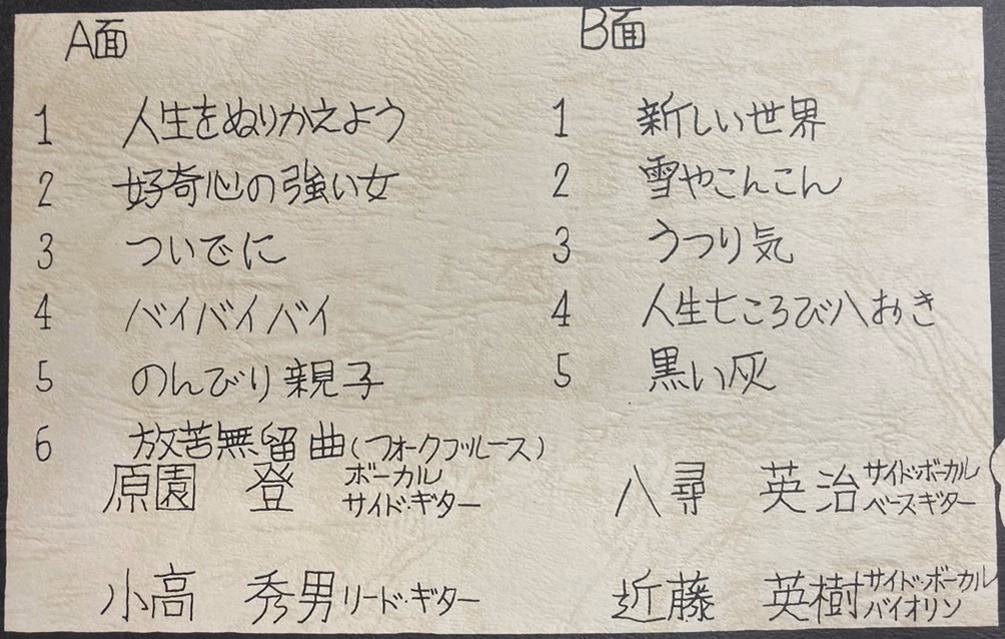 A面
1 人生をぬりかえよう
2 好奇心の強い女
3 ついでに
4 バイバイバイ
5 のんびり親子
6 放苦無留曲(フォークブルース)
B面
1 新しい世界
2 雪やこんこん
3 うつり気
4 人生七ころび八おき
5 黒い灰
原園 登 ボーカル
サイド・ギター
八尋 英治 サイド・ボーカル
ベースギター
小高 秀男 リード・ギター
近藤 英樹 サイド・ボーカル
バイオリン